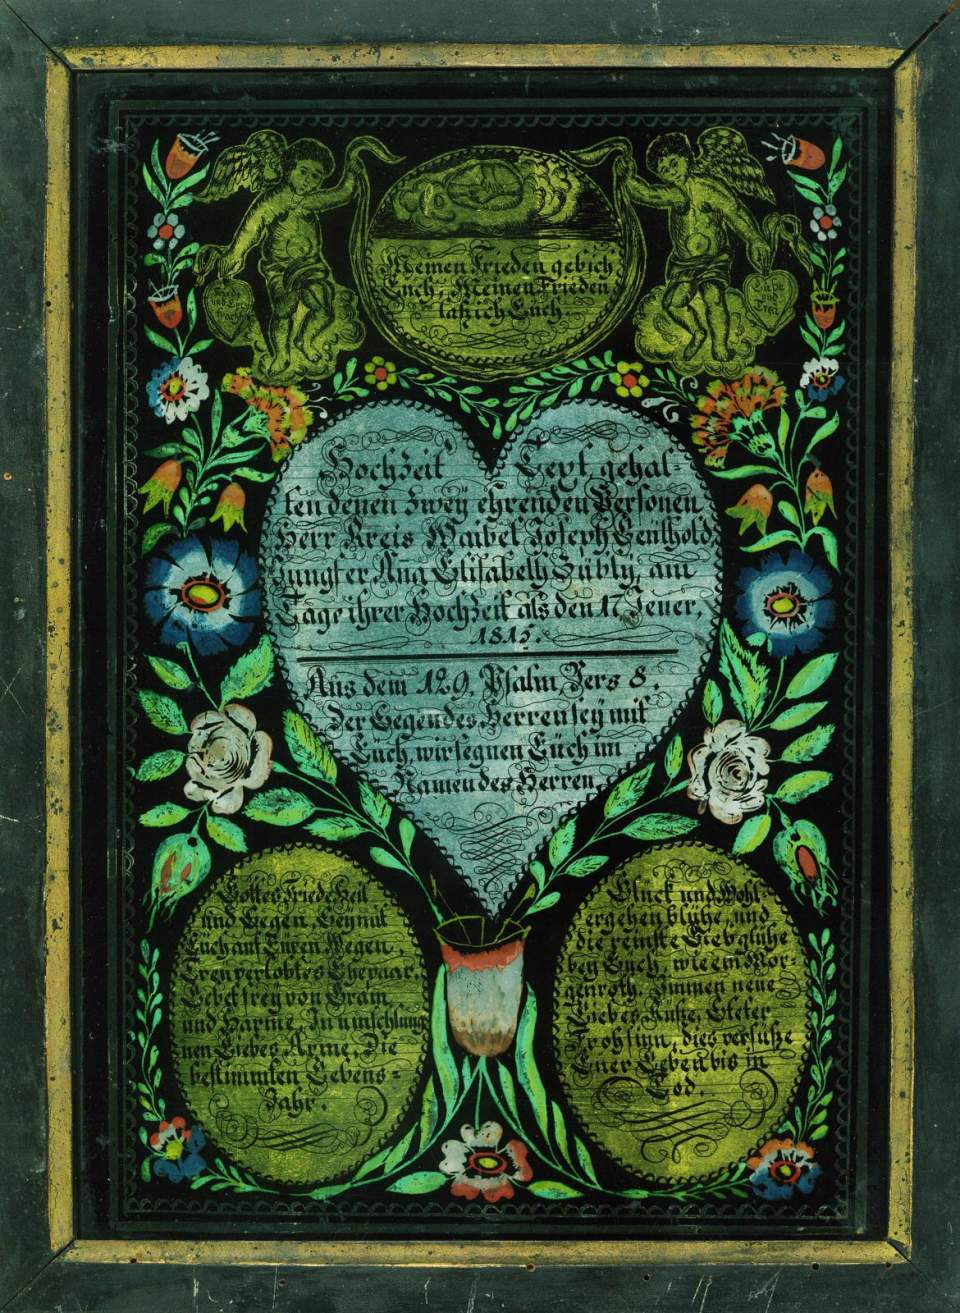 Meinen Frieden geb ich
Euch, Meinen Frieden
laß ich Euch.
Liebe
und
Treu
Hochzeit Text, gehal=
ten denen zweÿ ehrenden Personen
Herr Kreis Waibel Joseph
Jungfer Ana Elisabeth Kübly, am
Tage ihrer Hochzeit als den 17. Jener,
1815.
Aus dem 129, Psalm, Vers 8,
Der Segen des Herren seÿ mit
Euch, wir segnen Eüch im
Namen des Herren,
Gottes Friede Heil
und Segen, Seÿ mit
Eüch auf Eüren Wegen,
Treu verlobtes Ehepaar,
Lebet freÿ von Gram
und Harme, In umschlung
nen Liebes Arme, Die
bestimmten Lebens=
Jahr.
Glück und Wohl=
ergehen blühe, und
die reinste Lieb glühe
beÿ Euch, wie ein Mor=
genroth. Immer neue
Liebes Küße, Steter
Frohsinn, dies versüße
Euer Leben bis in
Tod.